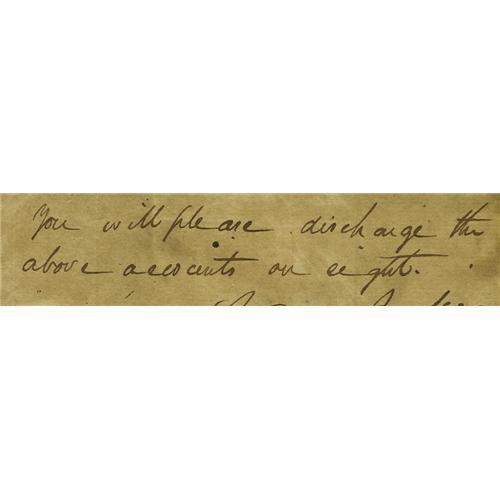 You will please discharge the
above accounts on sight.